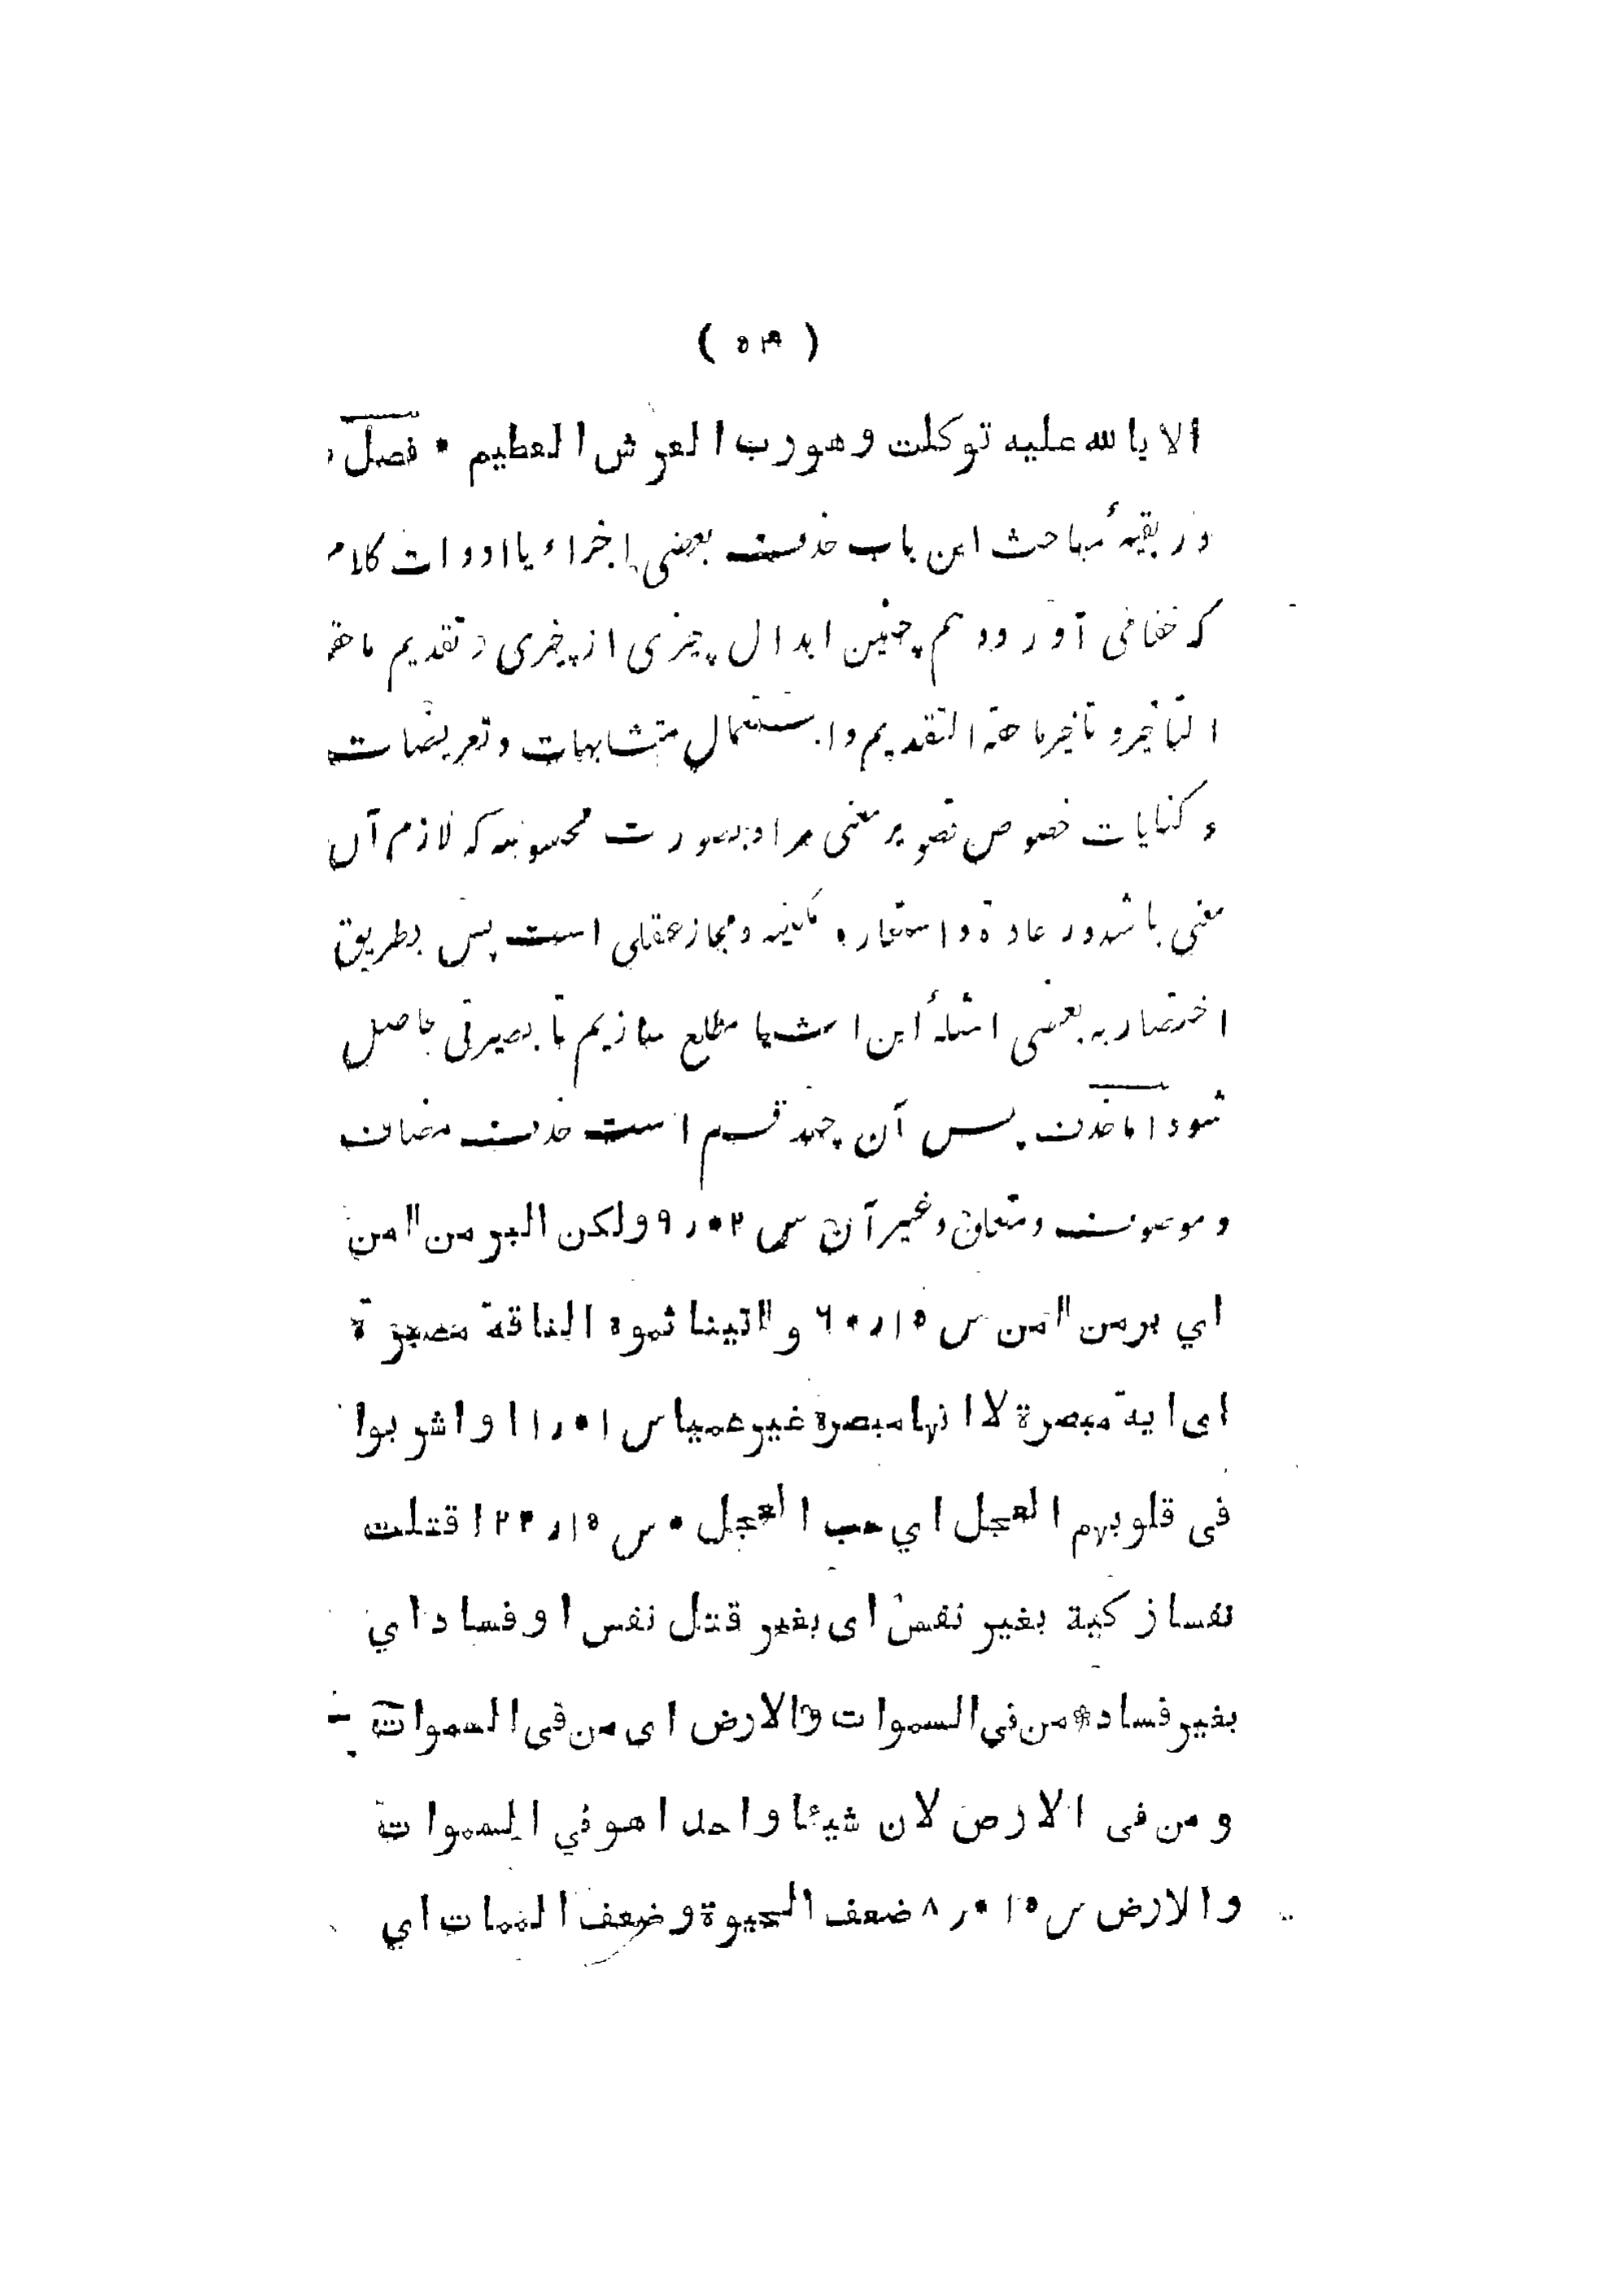 الا بالله عليه توكلت وهو رب العرش العظيم * فصل
در بقیهٔ مباحث این باب حذف بعضی اجزاء یا ادوات کلام
که خفا می آورد و هم چنین ابدال چیزی از چیزی و تقدیم ما حقه
التاخیر و تاخیر ما حقه التقدیم و استعمال متشابهات و تعریضات
و کنایات خصوص تصویر معنی مراد بصورت محسوسه که لازم آن
معنی باشد در عادة و استعاره مکنیه و مجاز عقلی است پس بطریق
اختصار به بعضی امثلهٔ این اشیا مطلع سازیم تا بصیرتی حاصل
شود اما حذف پس آن چند قسم است حذف مضاف
و موصوف و متعلق و غیر آن س ۲۰ر۹ ولكن البر من اامن
اي بر من اامن س ۱۵ر۶۰ و ااتينا ثموه الناقة مبصرة
اى اية مبصرة لا انها مبصرة غير عميا س ۱۰ر۱۱ واشربوا
فى قلوبهم العجل اي حب العجل * س ۱۵ر۲۳ اقتلت
نفسا زكية بغير نفس اى بغير قتل نفس او فساد اي
بغير فساد * من في السموات والارض اى من فى السموات
ومن فى الارض لان شيئا واحدا هو في السموات
والارض س ۱۵۰ر۸ ضعف الحيوة وضعف الممات اي